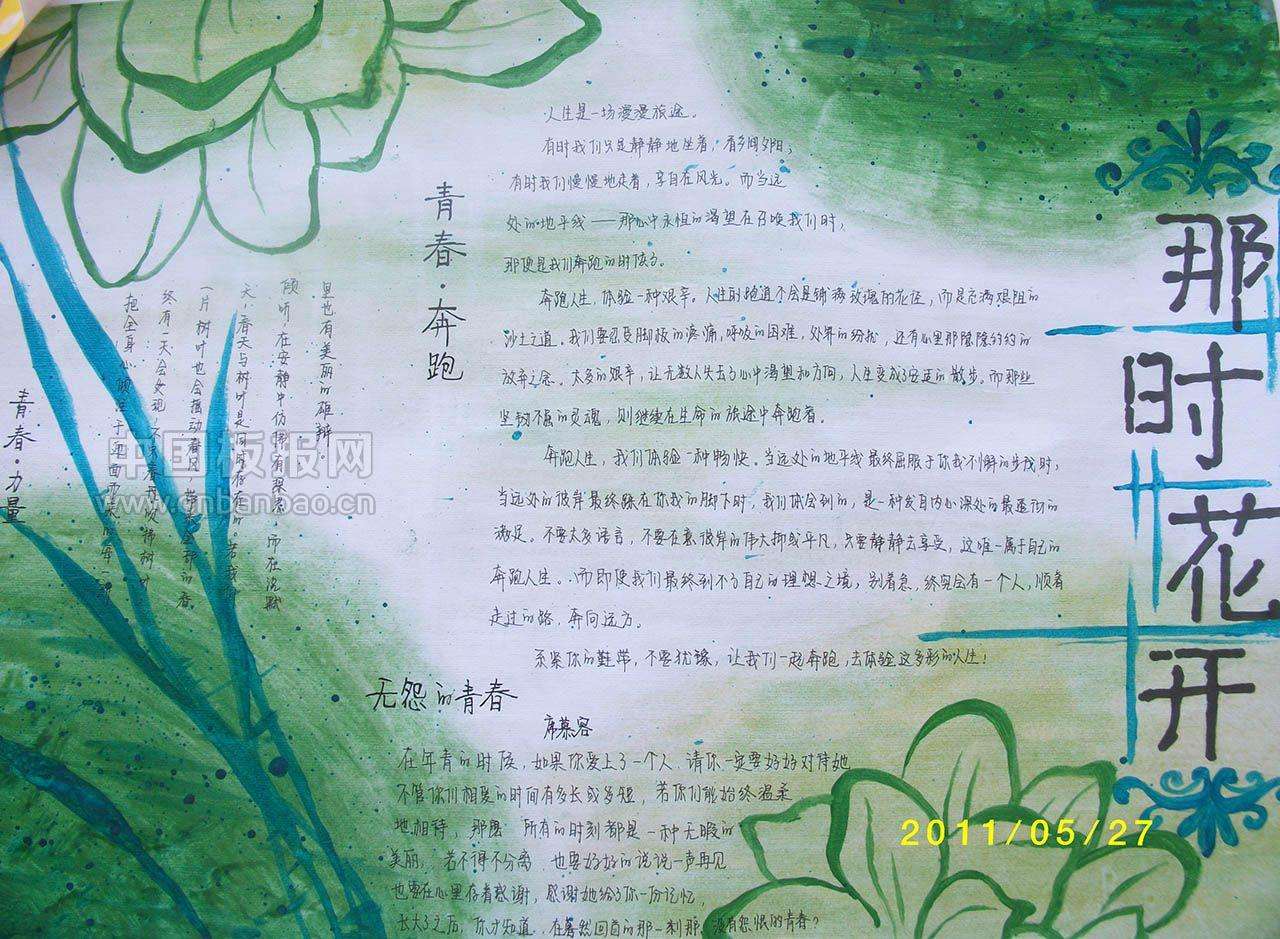 那时花开
青春·奔跑
人生是一场漫漫旅途。
有时我们只是静静地坐着，看乡间夕阳；
有时我们慢慢地走着，享自在风光。而当远
处的地平线——那心中永恒的渴望在召唤我们时，
那便是我们奔跑的时候了。
奔跑人生，体验一种艰辛。人生的跑道不会是铺满玫瑰的花径，而是充满艰阻的
沙土之道。我们要忍受脚板的疼痛，呼吸的困难，外界的纷扰，还有心里那隐隐约约的
放弃之念。太多的艰辛，让无数人失去了心中渴望和方向，人生变成了安逸的散步。而那些
坚韧不屈的灵魂，则继续在生命的旅途中奔跑着。
奔跑人生，我们体验一种畅快。当远处的地平线最终屈服于你我不懈的步伐时，
当远处的彼岸最终踩在你我的脚下时，我们体会到的，是一种发自内心深处的最透彻的
满足。不要太多语言，不要在意彼岸的伟大抑或平凡，只要静静去享受，这唯一属于自己的
奔跑人生。而即使我们最终到不了自己的理想之境，别着急，终究会有一个人，顺着
走过的路，奔向远方。
系紧你的鞋带，不要犹豫，让我们一起奔跑，去体验这多彩的人生！
里也有美丽的雄辩。
倾听，在安静中仿佛有
天，春天与树叶是同时存在的。
一片树叶也会摇动春风，带来全部的春
终有一天会发现，不
把全身心
青春·力量
无怨的青春
席慕容
在年青的时候，如果你爱上了一个人 请你一定要好好对待她
不管你们相爱的时间有多长或多短，若你们能始终温柔
地相待，那么 所有的时刻都是一种无暇的
美丽，若不得不分离 也要好好的说说一声再见
也要在心里存着感谢，感谢她给了你一份记忆，
长大了之后，你才知道，在蓦然回首的那一刹那，没有怨恨的青春？
中国板报网
www.cnbanbao.cn
2011/05/27